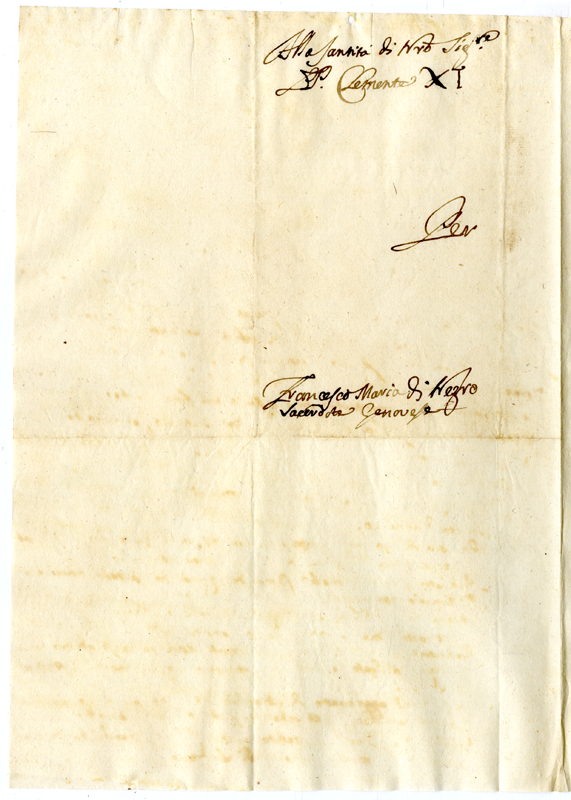 Alla Santità di Nrõ Sig.re
PP. Clemente XI
Per
Francesco Maria di Negro
Sacerdote Genovese